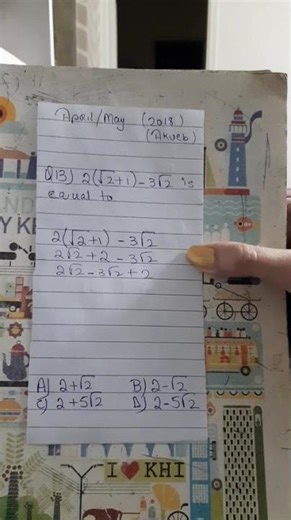 April/May (2018)
(Akueb)
Q13) 2(√2+1) - 3√2 is
equal to
2(√2+1) - 3√2
2√2 + 2 - 3√2
2√2 - 3√2 + 2
A) 2+√2 B) 2-√2
C) 2+5√2 D) 2-5√2
I ❤ KHI